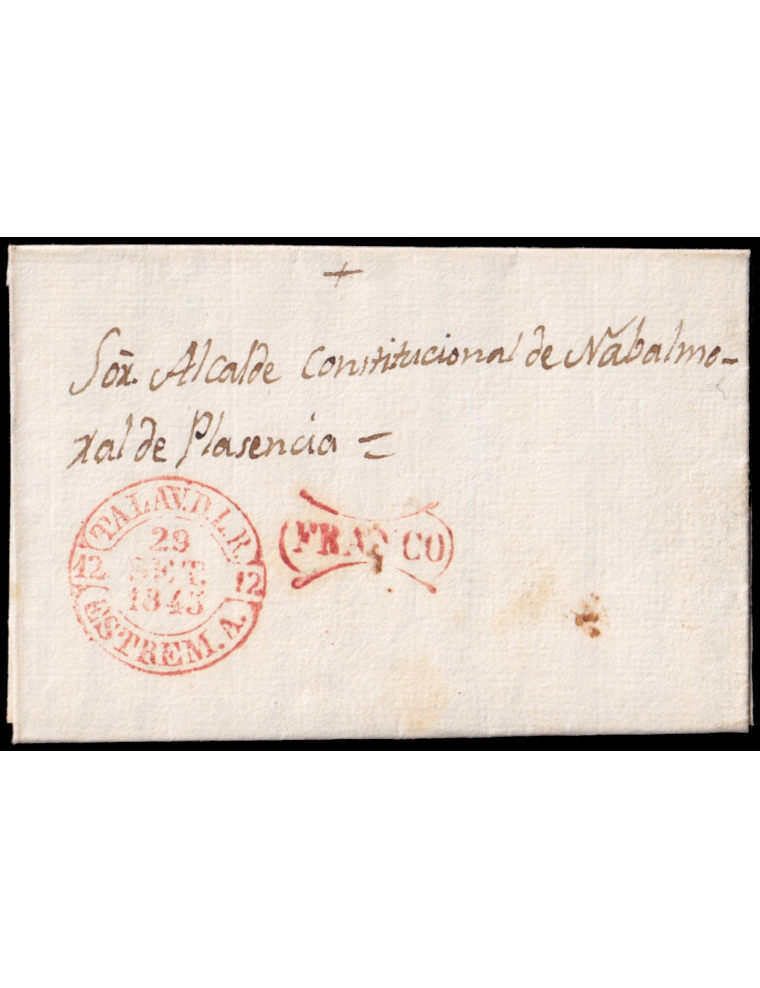 +
Sor. Alcalde Constitucional de Nabalmo-
ral de Plasencia =
TALAV.D L.R.
29
SET.
1843
12
12
ESTREM.A.
FRANCO